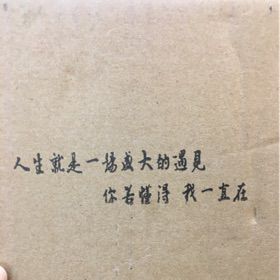 人生就是一場盛大的遇見
你若懂得 我一直在